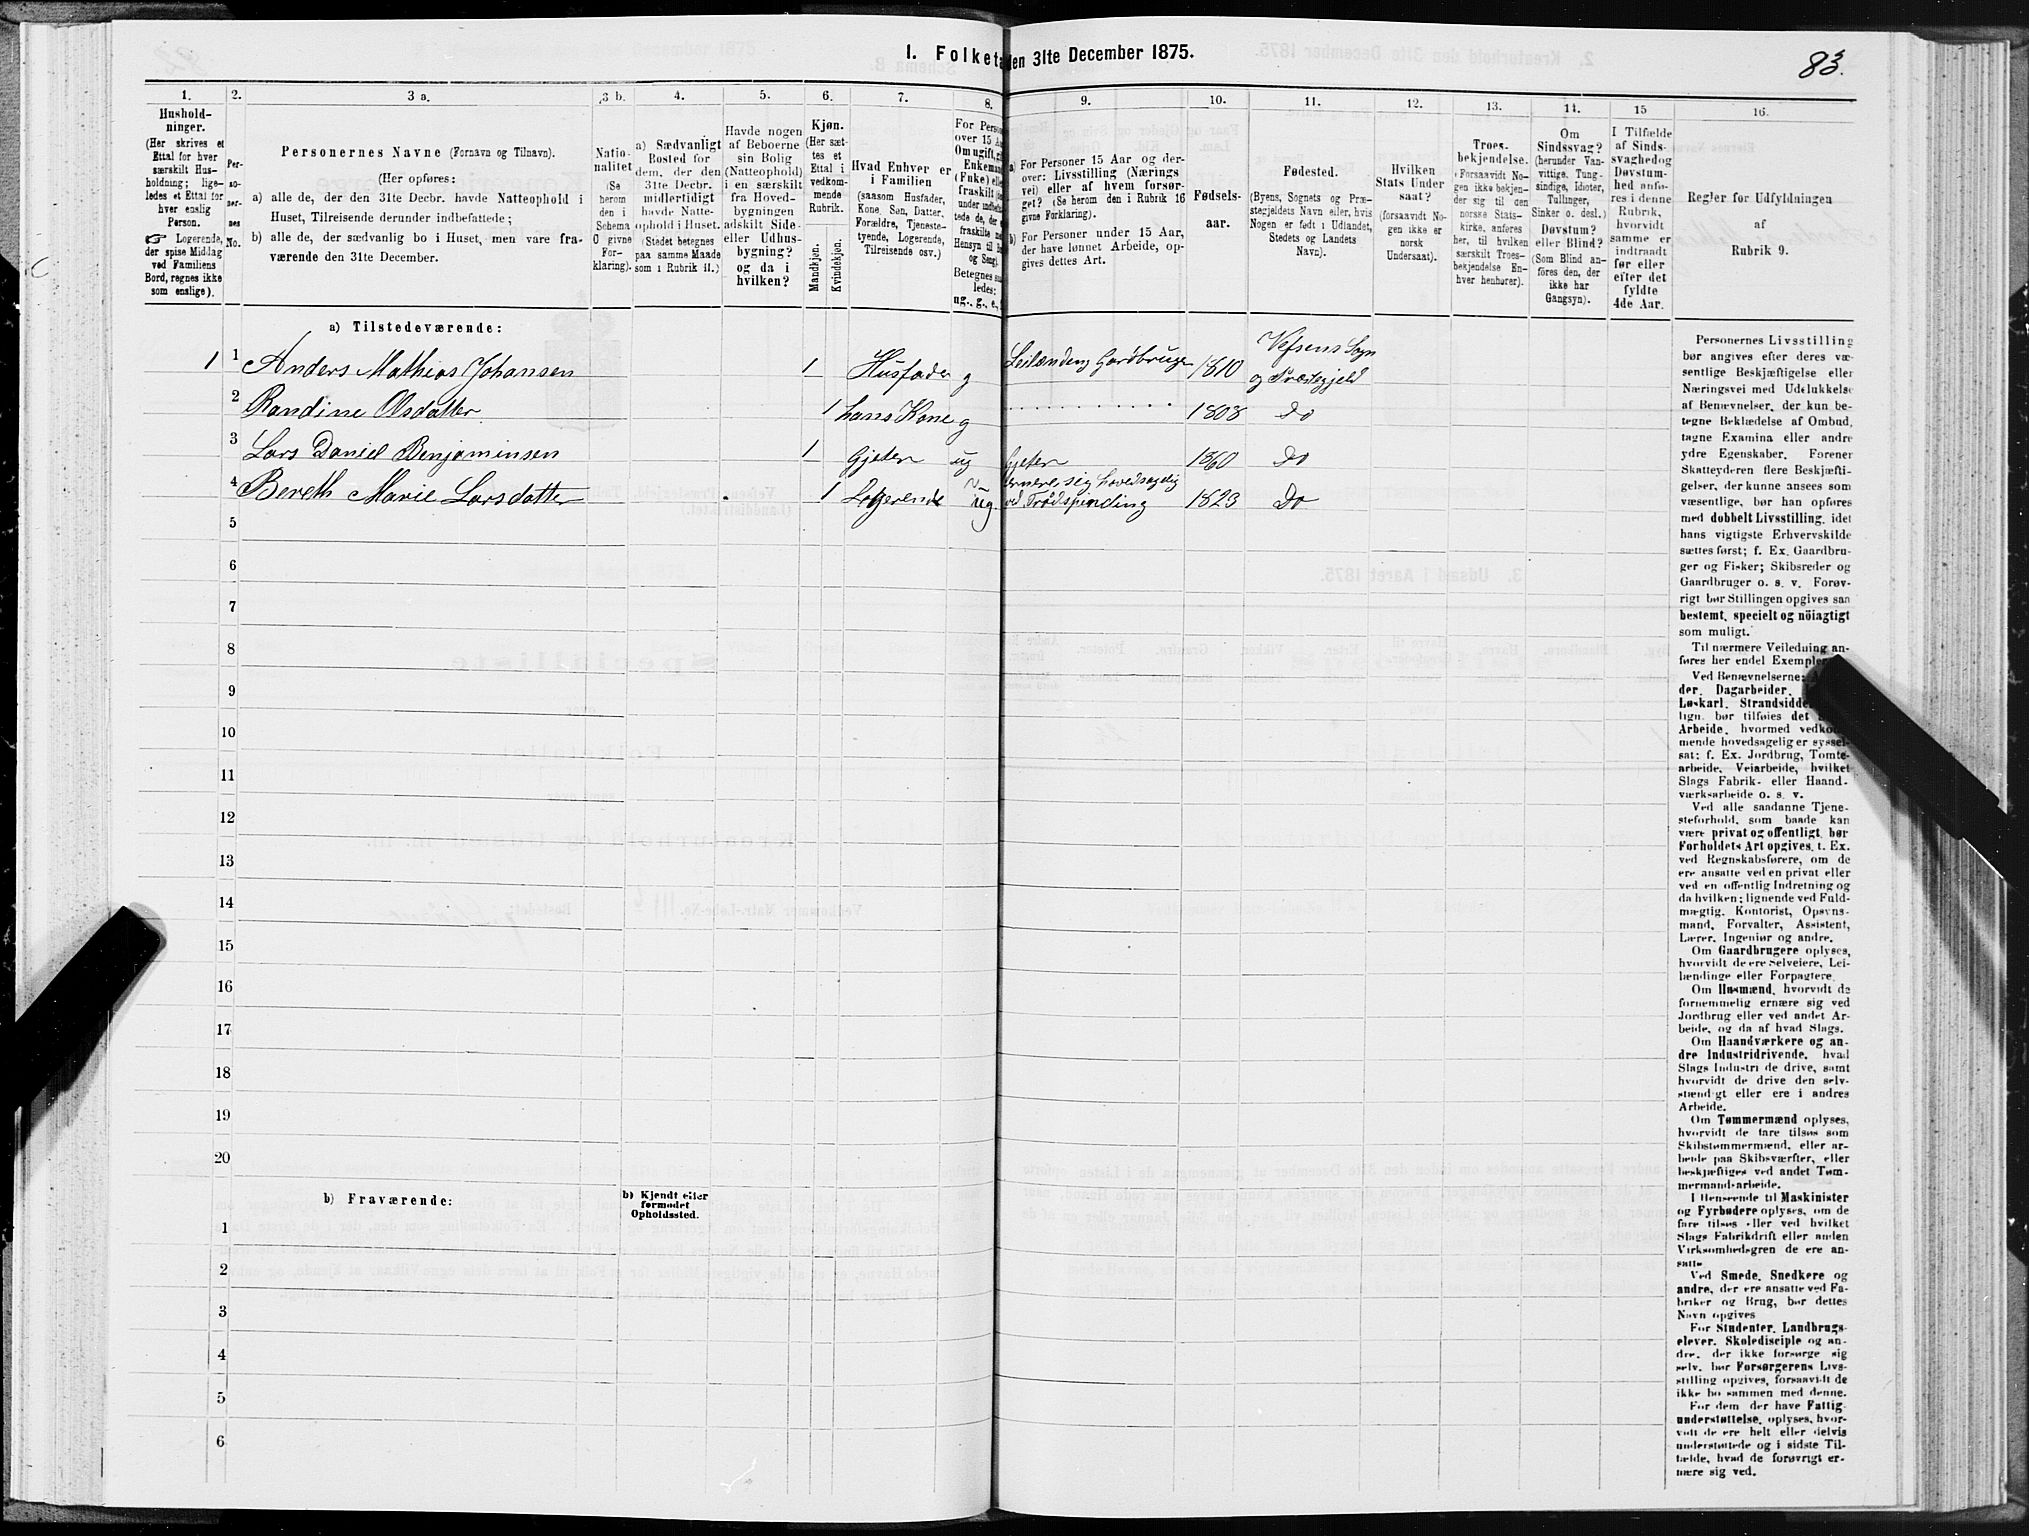 I. Folketa
den 31te December 1875.
83.
1. 2. 3 a. 3 b. 4. 5. 6. 7. 8. 9. 10. 11. 12. 13. 14. 15 16.
Hushold-
ninger.
(Her skrives et
Ettal for hver
særskilt Hus-
holdning; lige-
ledes et Ettal for
hver enslig
Person.
☞ Logerende,
der spise Middag
ved Familiens
Bord, regnes ikke
som enslige).
Per-
so-
ner-
nes
No.
Personernes Navne (Fornavn og Tilnavn).
(Her opføres:
a) alle de, der den 31te Decbr. havde Natteophold i
Huset, Tilreisende derunder indbefattede;
b) alle de, der sædvanlig bo i Huset, men vare fra-
værende den 31te December.
Natio-
nalitet
(Se
herom
den i
Schema
O givne
For-
klaring).
a) Sædvanligt
Bosted for
dem, der den
31te Decbr.
midlertidigt
havde Natte-
ophold i Huset.
(Stedet betegnes
paa samme Maade
som i Rubrik 11.)
Havde nogen
af Beboerne
sin Bolig
(Natteophold)
i en særskilt
fra Hoved-
bygningen
adskilt Side-
eller Udhus-
bygning?
og da i
hvilken?
Kjøn.
(Her sæt-
tes et
Ettal i
vedkom-
mende
Rubrik.
Mandkjøn.
Kvindekjøn.
Hvad Enhver er
i Familien
(saasom Husfader,
Kone, Søn, Datter,
Forældre, Tjeneste-
tyende, Logerende,
Tilreisende osv.)
For Perso
over 15 Aa
Om ugift, gi
Enkeman
(Enke) elle
fraskilt
Betegnes saa
ledes:
ug., g., e.,
a) For Personer 15 Aar og der-
over: Livsstilling (Nærings
vei) eller af hvem forsør-
get? (Se herom den i Rubrik 16
givne Forklaring).
b) For Personer under 15 Aar,
der have lønnet Arbeide, op-
gives dettes Art.
Fødsels-
aar.
Fødested.
(Byens, Sognets og Præ-
stegjeldets Navn eller, hvis
Nogen er født i Udlandet,
Stedets og Landets
Navn).
Hvilken
Stats Under
saat?
(forsaavidt No-
gen ikke er
norsk
Undersaat).
Troes-
bekjendelse.
(Forsaavidt No-
gen ikke bekjen-
der sig til den
norske Stats-
kirke, anføres
her, til hvilken
særskilt Troes-
bekjendelse En-
hver henhører).
Om
Sindssvag?
(herunder Van-
vittige, Tung-
sindige, Idioter,
Tullinger,
Sinker o. desl.)
Døvstum?
eller Blind?
(Som Blind an-
føres den, der
ikke har
Gangsyn).
I Tilfælde
af Sinds-
svaghed og
Døvstum-
hed anfø-
res i denne
Rubrik,
hvorvidt
samme er
indtraadt
før eller
efter det
fyldte
4de Aar.
Regler for Udfyldningen
af
Rubrik 9.
a) Tilstedeværende:
1 1 Anders Mathias Johansen 1 Husfader g Leilænding Gardbruger 1810 Vefsens Sogn
og Præstegjeld
2 Randine Olsdatter 1 hans Kone g 1808 Do
3 Lars Daniel Benjaminsen 1 Gjeter ug Gjeter 1860 Do
4 Bereth Marie Larsdatter 1 Logerende ug. ernerer sig hovedsagelig
ved Trødspinding 1823 Do
5
6
7
8
9
10
11
12
13
14
15
16
17
18
19
20
b) Fraværende:
b) Kjendt eller
formodet
Opholdssted.
1
2
3
4
5
6
Personernes Livsstilling
bør angives efter deres væ-
sentlige Beskjæftigelse eller
Næringsvei med Udelukkelse
af Benævnelser, der kun be-
tegne Beklædelse af Ombud,
tagne Examina eller andre
ydre Egenskaber. Forener
Skatteyderen flere Beskjæfti-
gelser, der kunne ansees som
væsentlige, bør han opføres
med dobbelt Livsstilling, idet
hans vigtigste Erhvervskilde
sættes først; f. Ex. Gaardbru-
ger og Fisker; Skibsreder og
Gaardbruger o. s. v. Forøv-
rigt bør Stillingen opgives saa
bestemt, specielt og nöiagtigt
som muligt.
Til nærmere Veiledning an-
føres her endel Exempler
Ved Benævnelserne:
der, Dagarbeider,
Løskarl, Strandsidde
lign. bør tilføies det
Arbeide, hvormed vedkom-
mende hovedsagelig er syssel-
sat; f. Ex. Jordbrug, Tomte-
arbeide, Veiarbeide, hvilket
Slags Fabrik- eller Haand-
værksarbeide o. s. v.
Ved alle saadanne Tjene-
steforhold, som baade kan
være privat og offentligt, bør
Forholdets Art opgives, f. Ex.
ved Regnskabsførere, om de
ere ansatte ved en privat eller
ved en offentlig Indretning og
da hvilken; lignende ved Fuld-
mægtig, Kontorist, Opsyns-
mand, Forvalter, Assistent,
Lærer, Ingeniør og andre.
Om Gaardbrugere oplyses,
hvorvidt de ere Selveiere, Lei-
lændinge eller Forpagtere.
Om Husmænd, hvorvidt de
fornemmelig ernære sig ved
Jordbrug eller ved andet Ar-
beide, og da af hvad Slags.
Om Haandværkere og an-
dre Industridrivende, hvad
Slags Industri de drive, samt
hvorvidt de drive den selv-
stændigt eller ere i andres
Arbeide.
Om Tømmermænd oplyses,
hvorvidt de fare tilsøs som
Skibstømmermænd, eller ar-
beide paa Skibsværfter, eller
beskjæftiges ved andet Tøm-
mermandsarbeide.
I Henseende til Maskinister
og Fyrbødere oplyses, om de
fare tilsøs eller ved hvilket
Slags Fabrikdrift eller anden
Virksomhedsgren de ere an-
satte.
Ved Smede, Snedkere og
andre, der ere ansatte ved Fa-
briker og Brug, bør dettes
Navn opgives
For Studenter, Landbrugs-
elever, Skoledisciple og an-
dre, der ikke forsørge sig
selv, bør Forsørgerens Livs-
stilling opgives, forsaavidt de
ikke bo sammen med denne.
For dem der have Fattig-
understøttelse, oplyses, hvor-
vidt de ere helt eller delvis
understøttede og i sidste Til-
fælde, hvad de forøvrigt er-
nære sig ved.